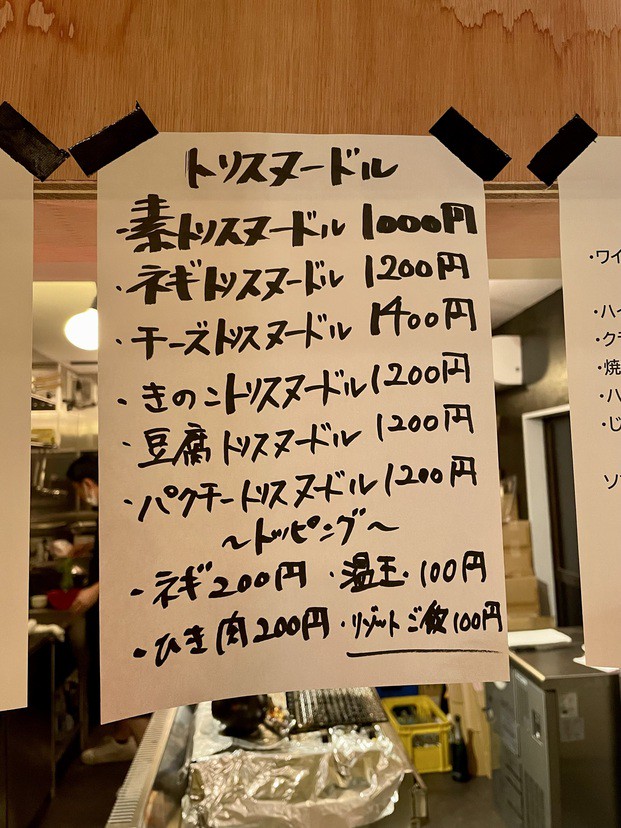 トリスヌードル
・素トリスヌードル 1000円
・ネギトリスヌードル 1200円
・チーズトリスヌードル 1400円
・きのこトリスヌードル 1200円
・豆腐トリスヌードル 1200円
・パクチートリスヌードル 1200円
〜トッピング〜
・ネギ200円 ・温玉・100円
・ひき肉200円 ・リゾットご飯100円
・ワイ
・ハイ
・クラ
・焼
・ハ
・じ
ソフ